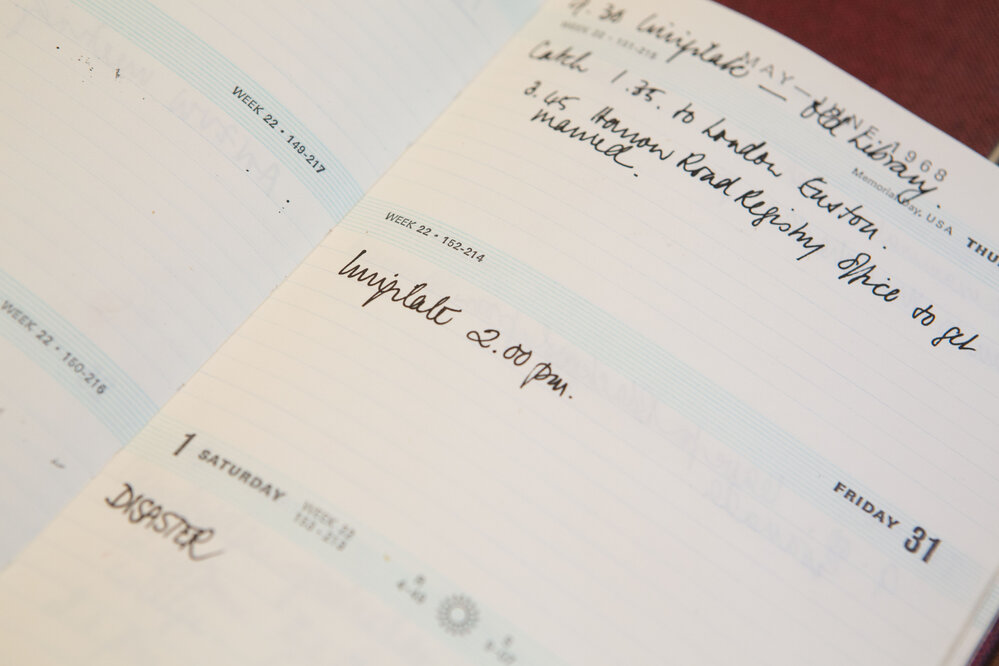 1.30 Invigilate — Old Library.
MAY—JUNE 1968
WEEK 22 • 151-215
Memorial Day, USA
Catch 1.35. to London Euston.
3.45 Harrow Road Registry Office to get
married.
WEEK 22 • 149-217
WEEK 22 • 152-214
Invigilate 2.00 pm.
WEEK 22 • 150-216
FRIDAY 31
1 SATURDAY WEEK 22
153-213
DISASTER